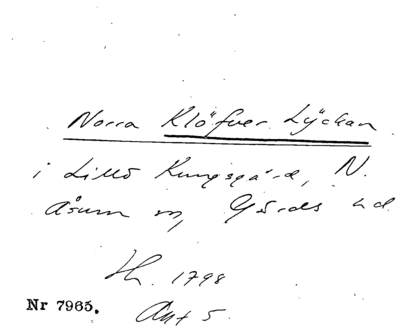 Norra Klöfver Lÿckan
i Lillö Kungsgård, N.
Åsum sn, Gärds hd
Hh. 1798
Nr 7965. Akt 5.